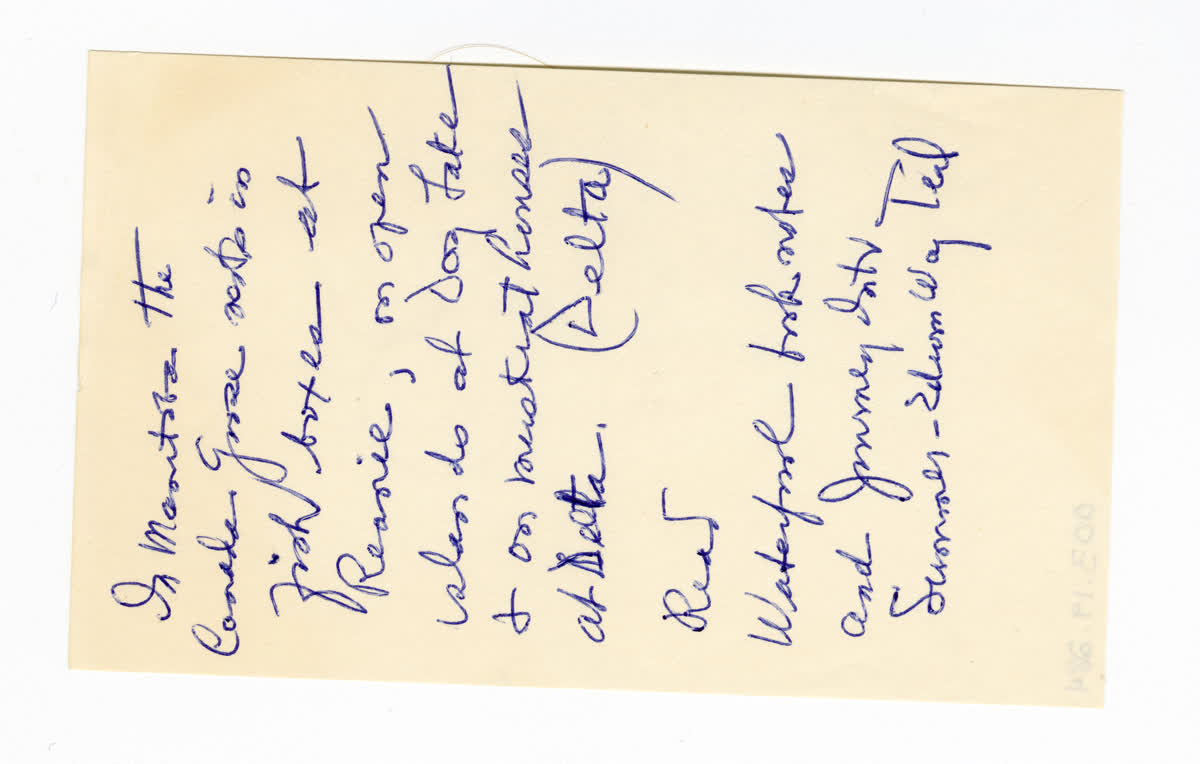 In Manitoba the
Canada Goose nests in
fish boxes at
Rennie, on open
islands at Dog Lake
& on muskrat houses
at Delta. (Delta)
Read
Waterfowl book notes
and Journey Into
Summer - Edwin Way Teal
003.19.284